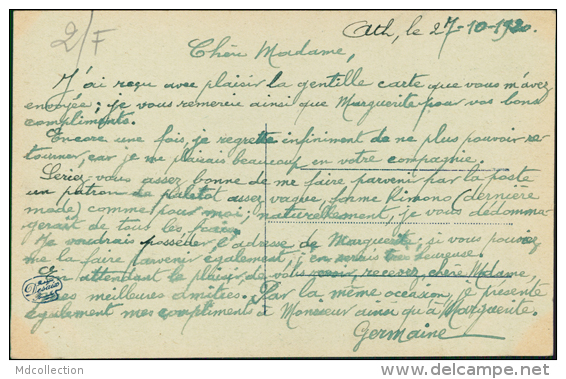 2/F
Ath, le 27-10-1920.
Chère Madame,
J'ai reçu avec plaisir la gentille carte que vous m'avez
envoyée; je vous remercie ainsi que Marguerite pour vos bons
compliments.
Encore une fois, je regrette infiniment de ne plus pouvoir re-
tourner, car je me plaisais beaucoup en votre compagnie.
Seriez-vous assez bonne de me faire parvenir par la poste
un patron de paletot assez vague, forme kimono (dernière
mode) comme pour moi; naturellement, je vous dédomma-
gerait de tous les
Je voudrais posséder l'adresse de Marguerite; si vous pouviez
me la faire parvenir également, j'en serais très heureuse.
En attendant le plaisir de vous recevez, chère Madame,
mes meilleures amitiés. Par la même occasion, je présente
également mes compliments à Monsieur ainsi qu'à Marguerite.
Germaine
Desaix
Mdcollection
delcampe.net